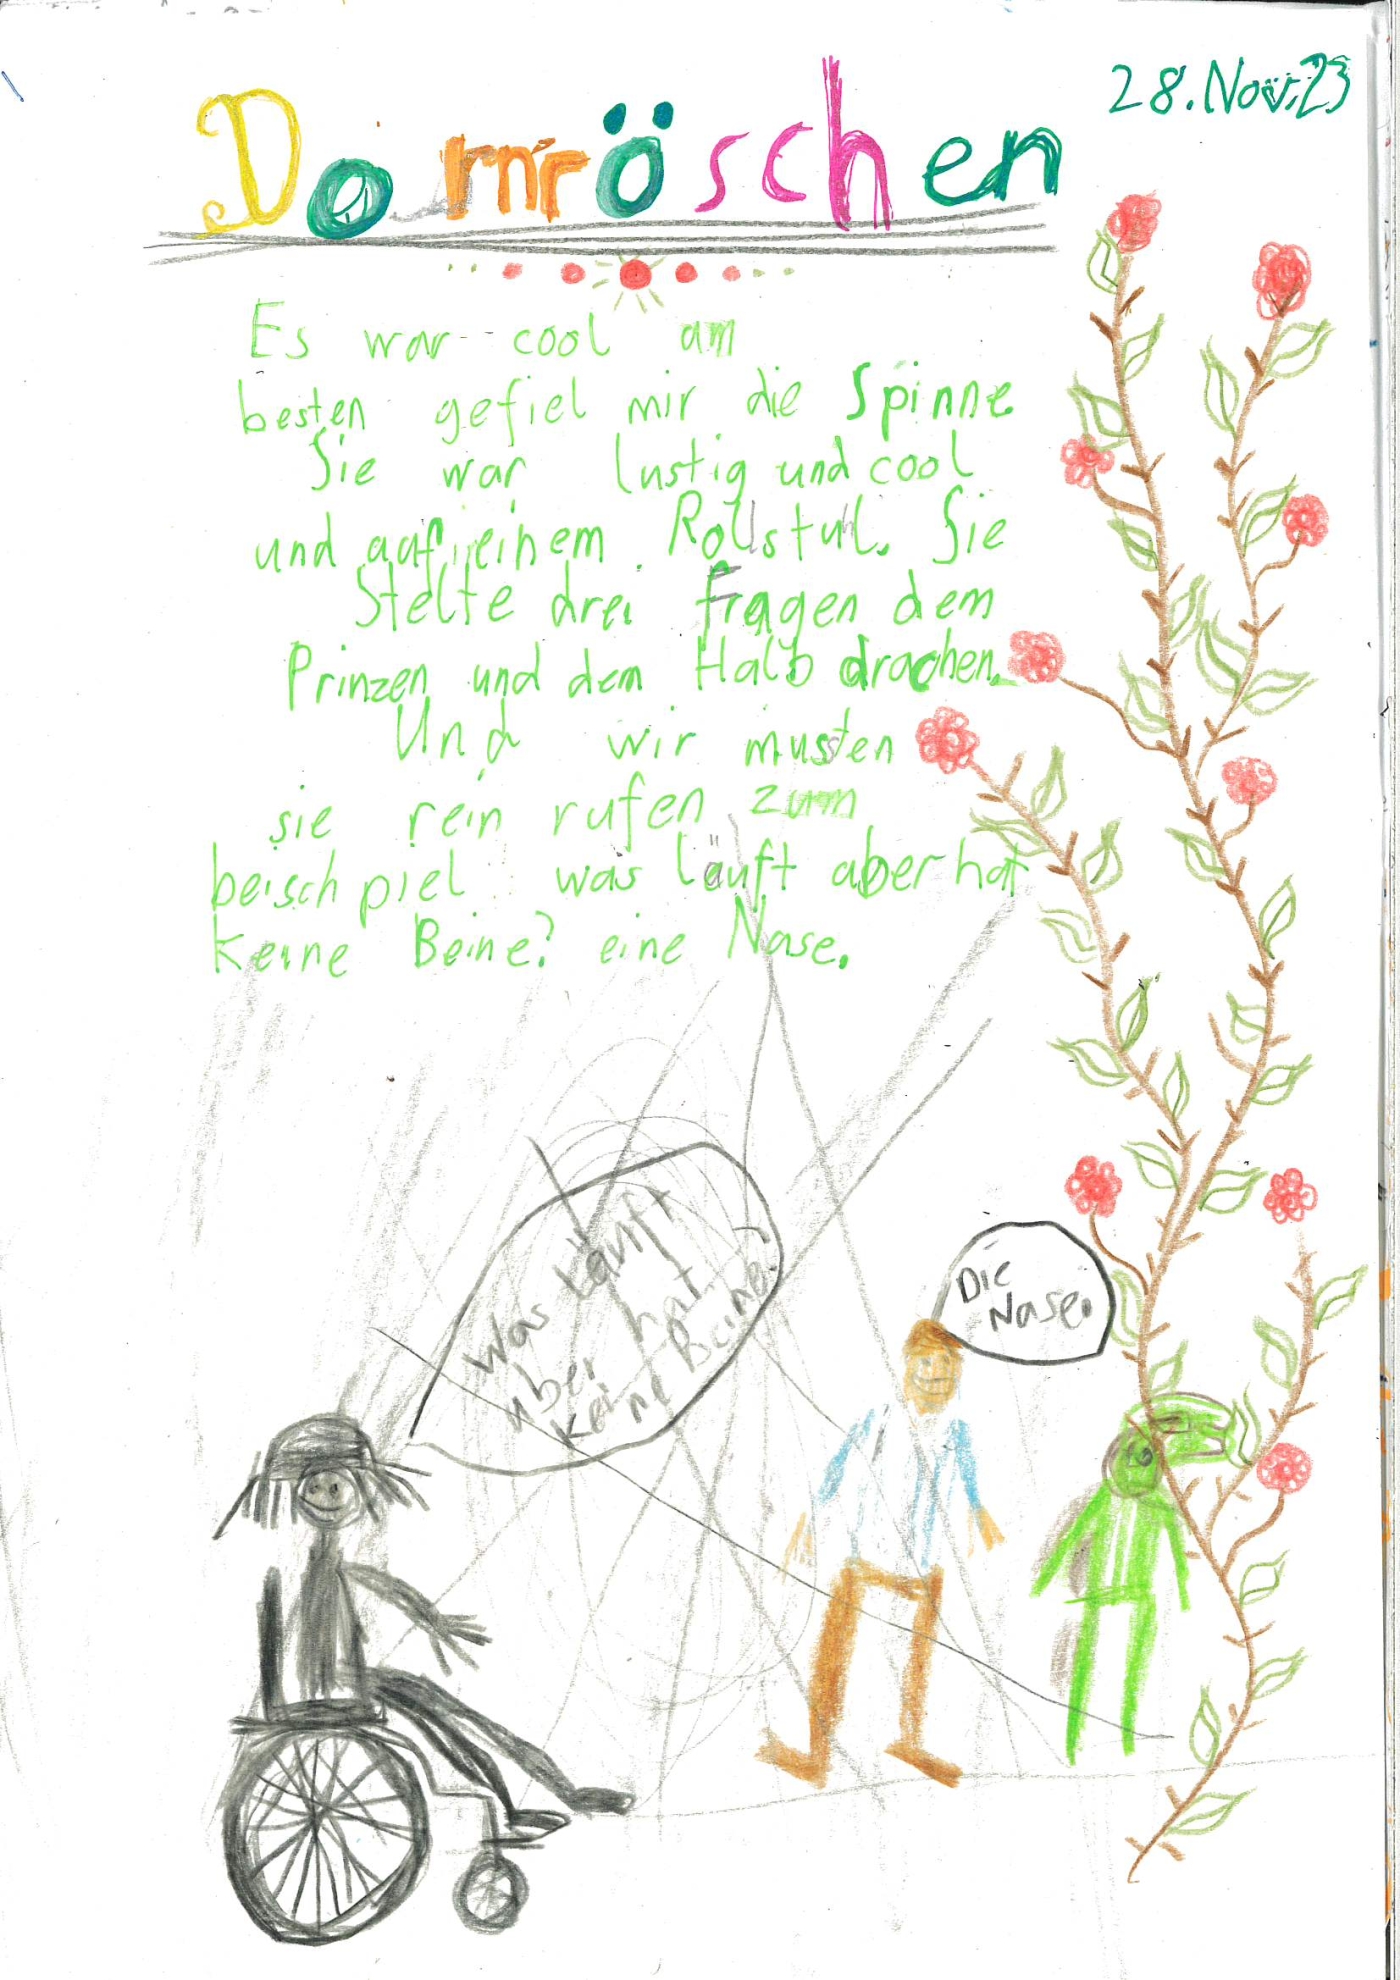 28. Nov. 23
Dornröschen
Es war cool am
besten gefiel mir die Spinne.
Sie war lustig und cool
und auf einem Rollstuhl. Sie
Stellte drei Fragen dem
Prinzen und dem Halb drachen.
Und wir musten
sie rein rufen zum
beischpiel was läuft aber hat
keine Beine? eine Nase.
Was läuft
aber hat
keine Beine?
Die
Nase.